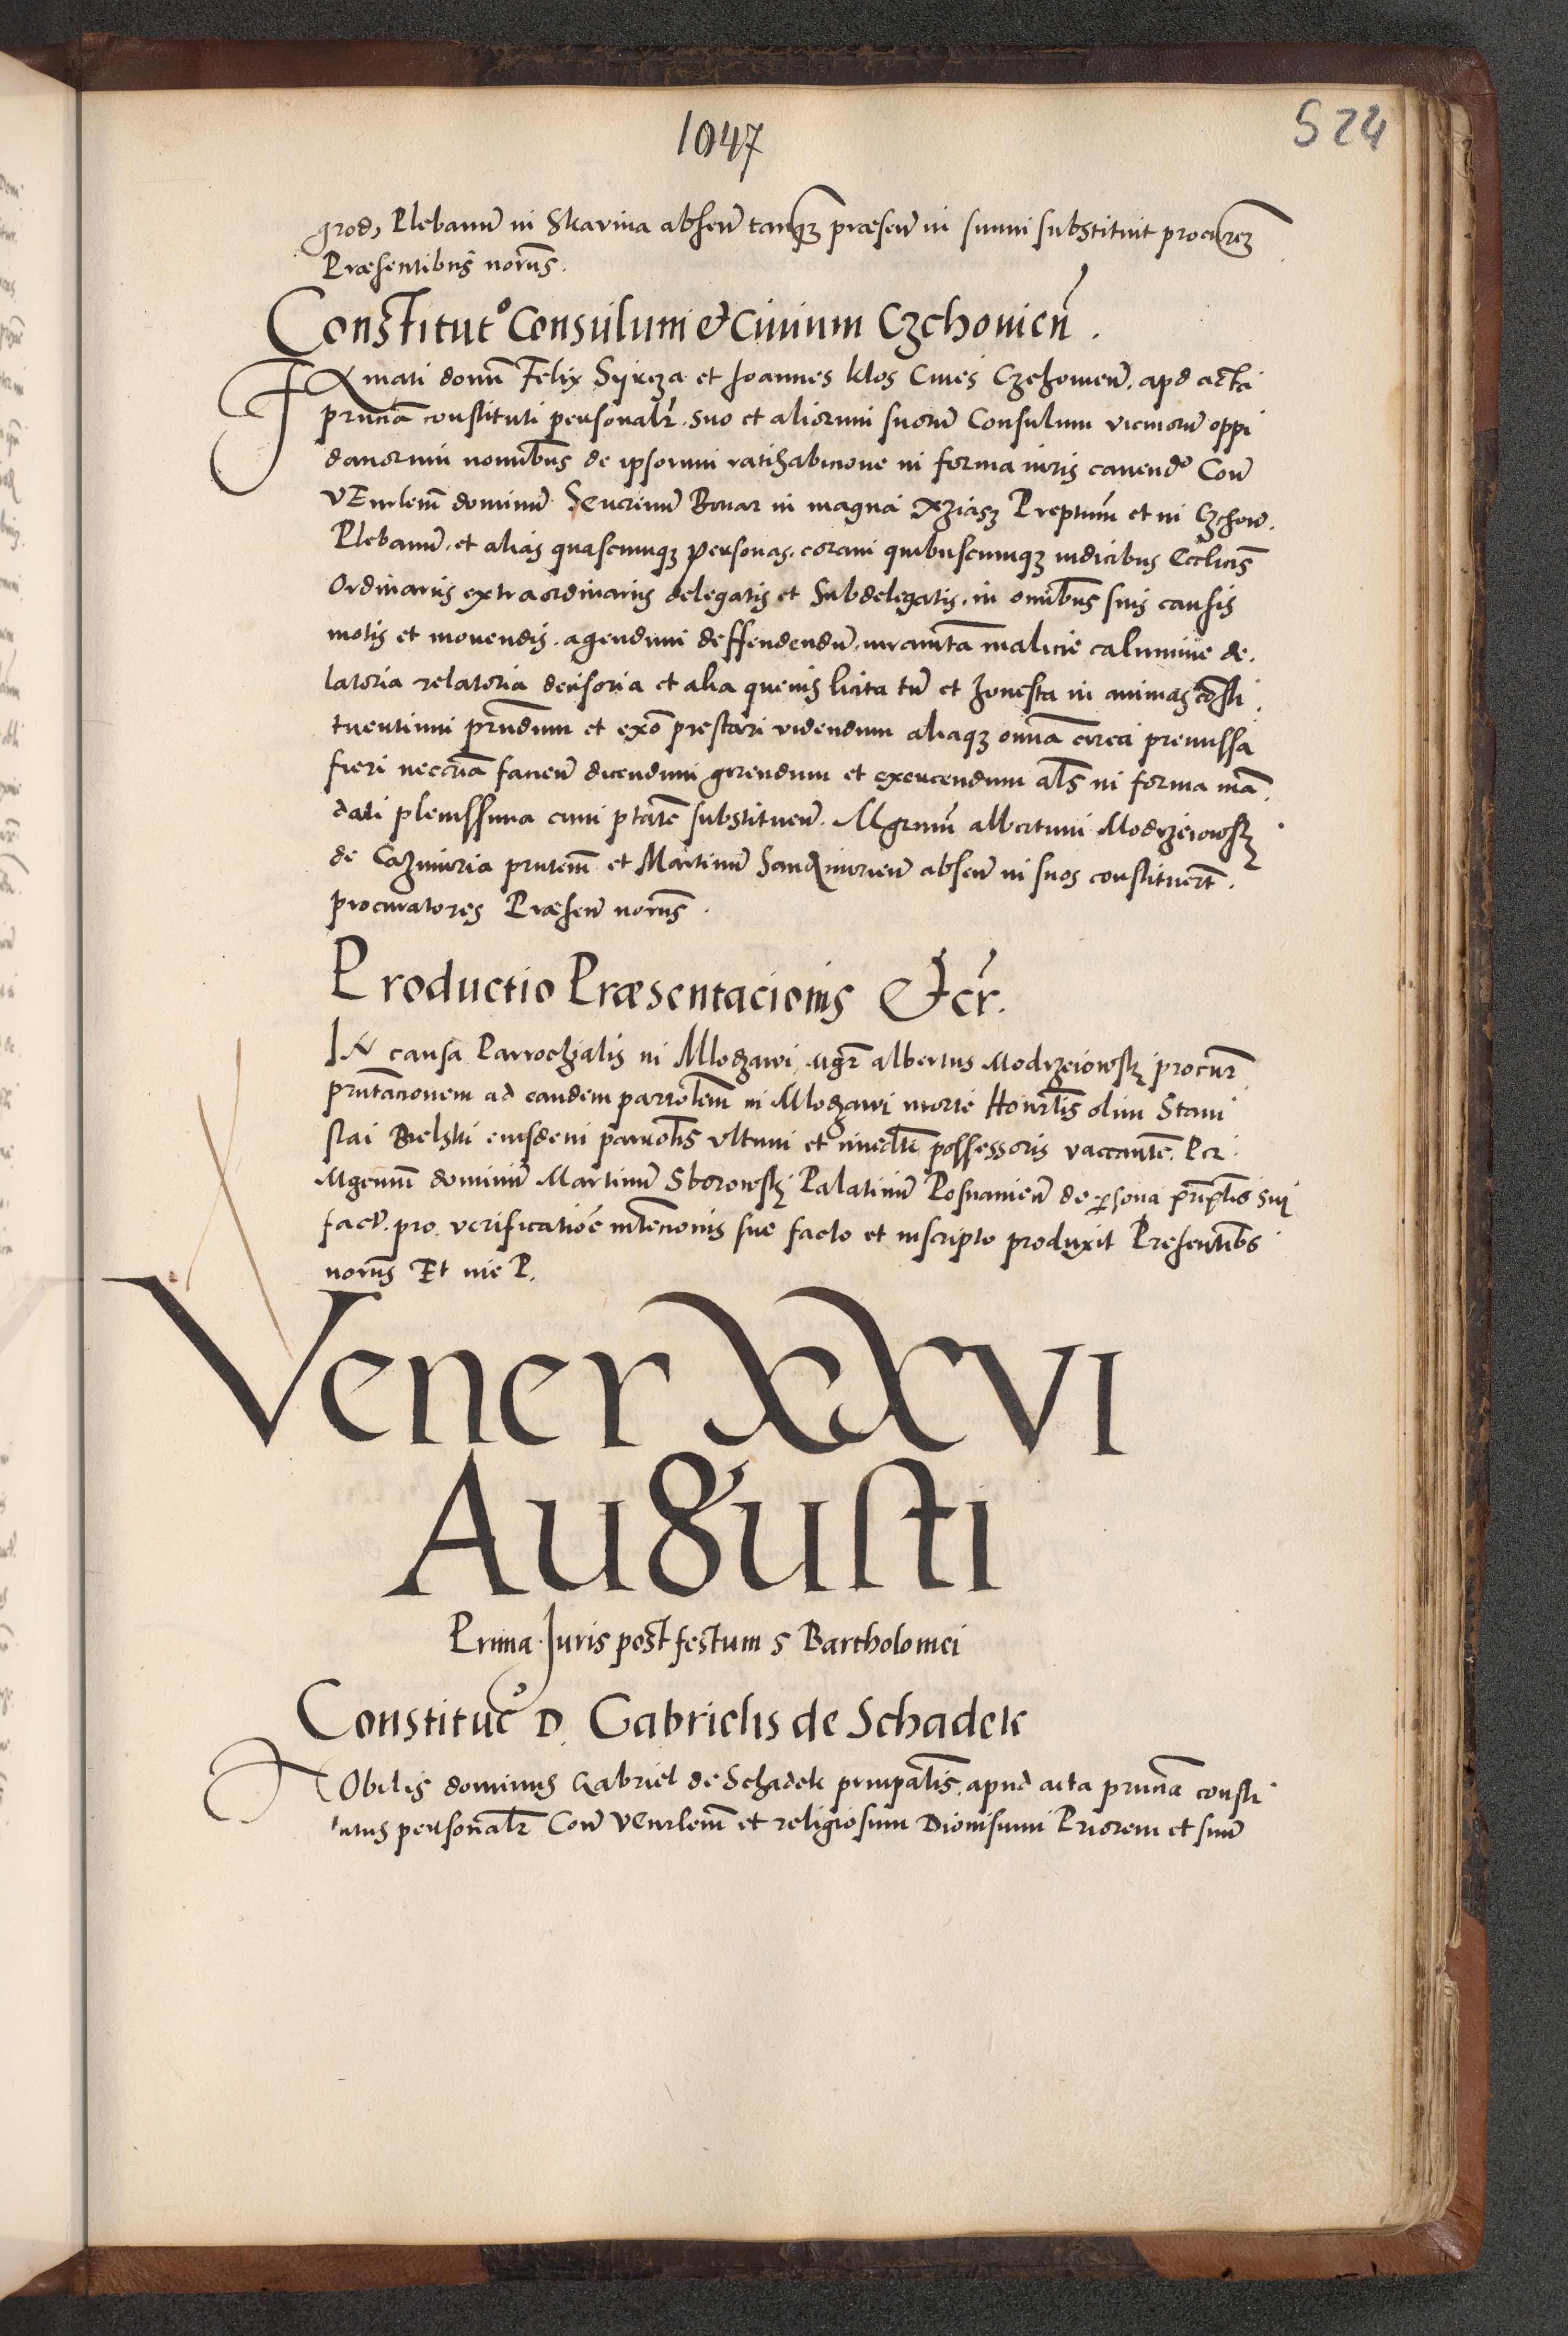 1047
524
grod, Plebanū in Skavina absen̄ tanqꝫ præsen̄ in suum substituit procurēꝫ
Præsentibus norūs.
Constitut° Consulum & Ciuium Czchouien̄.
FAmati domī Felix Syrcza et Joannes Klos Ciues Czchouien̄. apd acta
pn̄cia constituti personalr̄. suo et aliorum suorū Consulum vicinorū oppi
danorum nomibūs de ipsorum ratihabicione in forma iuris cauend° Con̄
VEnrlem̄ dominū Seuerinū Bonar in magna Xziasz Preptum̄ et in Czchow.
Plebanū. et alias quascunqꝫ personas. coram quibuscunqꝫ iudicibus Ecclicis̄
Ordinariis extraordinariis delegatis et Subdelegatis. in omibūs suis causis
motis et mouendis. agendum deffendendū. iuramtā malicie calumnie de.
latoria relatoria decisoria et alia queuis licita tn̄ et honesta in animas consti
tuentium prn̄dum et exō prestari videndum aliaqꝫ omīa circa premissa
fieri neccriā facien̄ dicendum gerendum et exercendum als̄ in forma mā
dati plenissima cum ptatē substituen̄. Mgrum̄ albertum Modrzeiowsky
de Cazimiria pn̄tem̄ et Martinū Sandzimirien̄ absen̄ in suos constituert̄.
procuratores Præsen̄ norūs.
Productio Præsentacionis &cr̄.
IN causa Parrochialis in Mlodzawi, Mgr̄ albertus Modrzeiowsky procur̄
pn̄tacionem ad eandem parrolem̄ in Mlodzawi morte Honrlis̄ olim Stani
slai Bielski eiusdem parrolis̄ vltimi et imedtī possessoris vaccantē. Per
Mgcum̄ dominū Martinū Sborowsky Palatinū Posnanien̄ de psona prn̄ptis sui
fact̄. pro. verificatioē intencionis sue facto et inscripto produxit Presentibs
norūs Et me P.
Vener XXVI
Augusti
Prima Juris post festum S Bartholomei
Constituc° D. Gabrielis de Schadek
NObilis dominus Gabriel de Schadek principalis̄. apud acta pn̄cia consti
tutus personalr̄ Con̄ VEnrlem̄ et religiosum Dionisium Priorem et suū